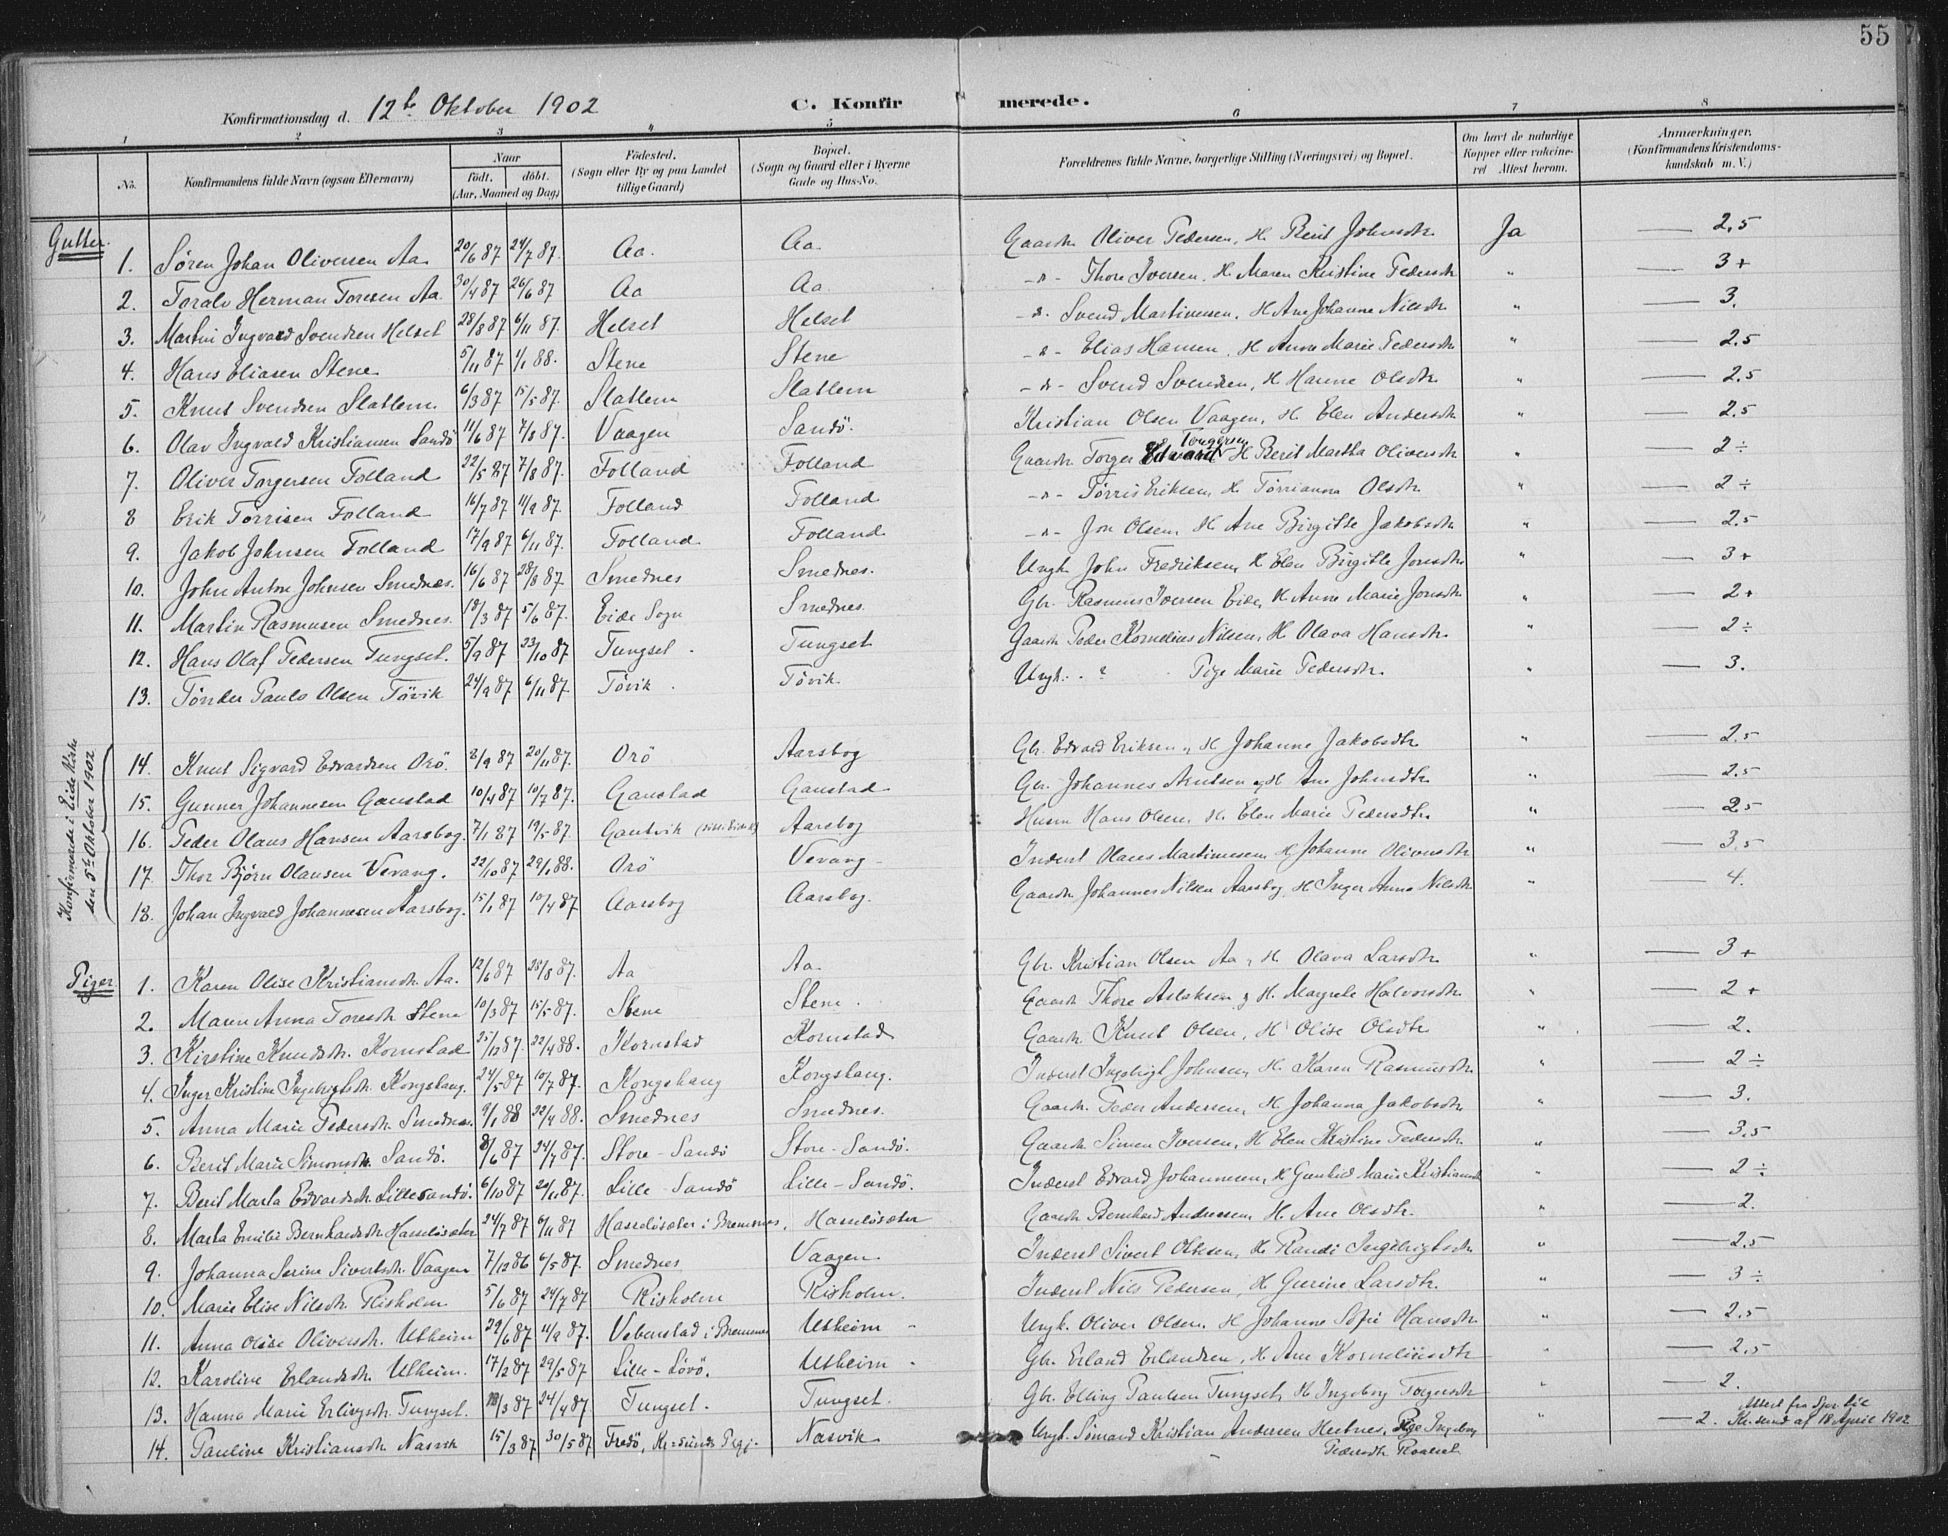 55
Konfirmationsdag d. 12te Oktober 1902 C. Konfirmerede.
1 2 3 4 5 6 7 8
No. Konfirmandens fulde Navn (ogsaa Efternavn) Naar Födt. döbt. (Aar, Maaned og Dag) Födested. (Sogn eller By og paa Landet tillige Gaard) Bopæl. (Sogn og Gaard eller i Byerne Gade og Hus-No. Forældrenes fulde Navne, borgerlige Stilling (Næringsvei) og Bopæl. Om havt de naturlige Kopper eller vakcineret Attest herom. Anmærkninger. (Konfirmandens Kristendomskundskab m. V.)
Gutter.
1. Søren Johan Oliversen Aa. 20/6 87 24/7 87. Aa. Aa. Gaardbr. Oliver Pedersen, H. Berit Johnsdtr. Ja — 2,5
2. Toralv Herman Toresen Aa. 30/4 87 26/6 87 Aa Aa. -"- Thore Iversen, H. Maren Kristine Pedersdtr " — 3+
3. Martin Ingvard Svendsen Helset 28/8 87 6/11 87. Helset Helset -"- Svend Martinusen, H. Ane Johanne Nilsdtr " — 3.
4. Hans Eliasen Stene. 5/11 87 1/1 88. Stene Stene -"- Elias Hansen, H. Anne Marie Pedersdtr " — 2.5
5. Knut Svendsen Slatlem. 6/3 87 15/5 87. Slatlem Slatlem -"- Svend Svendsen, H. Hanne Olsdtr. " — 2.5
6. Olav Ingvald Kristiansen Sandö 11/6 87 7/8 87. Vaagen Sandö. Kristian Olsen Vaagen, H. Elen Andersdtr " — 2.5
7. Oliver Torgersen Folland 22/5 87 7/8 87. Folland Folland Gaardbr. Torger Torgersen H. Berit Martha Oliversdtr " — 2÷
8 Erik Törrisen Folland 16/7 87 11/9 87. Folland Folland -"- Törris Eriksen, H. Törrianna Olsdtr. " — 2÷
9. Jakob Johnsen Folland 17/9 87 6/11 87. Folland Folland -"- Jon Olsen, H. Ane Birgitte Jakobsdtr. " — 2.5
10. John Anton Johnsen Smednes. 16/6 87 28/8 87. Smednes Smednes. Ungk. John Fredriksen, H. Elen Birgitte Jonsdtr. " — 3+
11. Martin Rasmusen Smednes. 18/3 87 5/6 87. Eide Sogn Smednes. Gbr. Rasmus Iversen Eide, H. Anne Marie Jonsdtr " — 2+
12. Hans Olaf Pedersen Tungset. 5/9 87 23/10 87 Tungset. Tungset Gaardbr. Peder Kornelius Nilsen, H. Olava Hansdtr. " — 2÷
13. Tönder Paulo Olsen Tövik 24/9 87 6/11 87. Tövik. Tövik. Ungk. ? Pige Marie Pedersdtr. " — 3.
Konfirmerede i Eide Kirke
den 5te Oktober 1902
14. Knut Sigvard Edvardsen Orö. 8/9 87 20/11 87. Orö Aarsbog Gbr. Edvard Eriksen, H. Johanne Jakobsdtr. " — 2.5
15. Gunner Johannesen Gaustad 10/4 87 10/7 87. Gaustad Gaustad Gbr. Johannes Arntsen og H. Ane Johnsdtr. " — 2.5
16. Peder Olaus Hansen Aarsbog. 7/1 87 19/5 87. Gautvik Aarsbog Husm. Hans Olsen, H. Elen Marie Pedersdtr. " — 2.5
17. Thor Bjørn Olausen Vevang. 22/10 87 29/1 88. Orö Vevang Inderst Olaus Martinusen, H. Johanne Oliversdtr " — 3.5
18. Johan Ingvald Johannesen Aarsbog. 15/1 87 10/4 87 Aarsbog Aarsbog. Gaardbr. Johannes Nilsen Aarsbog, H. Inger Anna Nilsdtr " — 4.
Piger
1. Karen Olise Kristiansdtr. Aa. 12/6 87 28/8 87. Aa Aa. Gbr. Kristian Olsen Aa, H. Olava Larsdtr. " — 3+
2. Maren Anna Toresdtr. Stene 10/3 87 15/5 87. Stene Stene. Gaardbr. Thore Aslaksen, H. Magrete Halvorsdtr. " — 2+
3. Kirstine Knudsdtr. Kornstad 25/12 87. 22/4 88. Kornstad Kornstad Gaardbr. Knut Olsen, H. Olise Olsdtr. " — 2.
4. Inger Kristine Ingebrigtsdtr. Kongshaug. 24/5 87 10/7 87. Kongshaug Kongshaug. Inderst Ingebrigt Johnsen, H. Karen Rasmusdtr. " — 2÷
5. Anna Marie Pedersdtr Smednes. 9/1 88 22/4 88. Smednes Smednes. Gaardbr. Peder Andersen, H. Johanna Jakobsdtr " — 3.
6. Berit Marie Simonsdtr. Sandö. 8/6 87 24/7 87. Store-Sandö Store-Sandö. Gaardbr. Simon Iversen, H. Elen Kristine Pedersdtr. " — 3,5
7. Berit Marta Edvardsdtr Lillesandö. 6/10 87 20/11 87. Lille Sandö Lille-Sandö. Inderst Edvard Johannesen, H. Gunhild Marie Kristiansdtr " — 2÷
8. Marta Emilie Bernhardsdtr Hasselösæter 24/7 87 6/11 87 Hasselösæter i Bremsnes, Hasselösæter Gaardbr. Bernhard Andreasen, H. Ane Olsdtr. " — 2.
9. Johanna Serine Sivertsdtr. Vaagen 7/12 86 6/5 87. Smednes Vaagen. Inderst Sivert Olsen, H. Randi Ingebrigtsdtr " — 2.5
10. Marie Elise Nilsdtr. Risholm. 5/6 87 24/7 87 Risholm Risholm. Inderst Nils Pedersen, H. Gurine Larsdtr. " — 3÷
11. Anna Olise Oliversdtr. Utheim 29/6 87 11/9 87. Vebenstad i Bremsnes Utheim Ungk. Oliver Olsen, H. Johanne Sofie Hansdtr. " — 2.5
12. Karoline Erlandsdtr. Utheim. 17/2 87 29/5 87 Lille-Lövö. Utheim Gbr. Erland Erlandsen, H. Ane Korneliusdtr " — 2,5
13. Hanna Marie Erlingsdtr. Tungset. /3 87 24/4 87 Tungset. Tungset. Gbr. Elling Paulsen Tungset, H. Ingeborg Torgersdtr " — 2.
14. Pauline Kristiansdtr Nasvik 15/3 87 30/5 87 Fredö, Kr.sunds Nasvik Ungk. Simand Kristian Andersen, Pige Ingeborg Pedersdtr " — 2. Attest fra Kr.sund af 18 April 1902